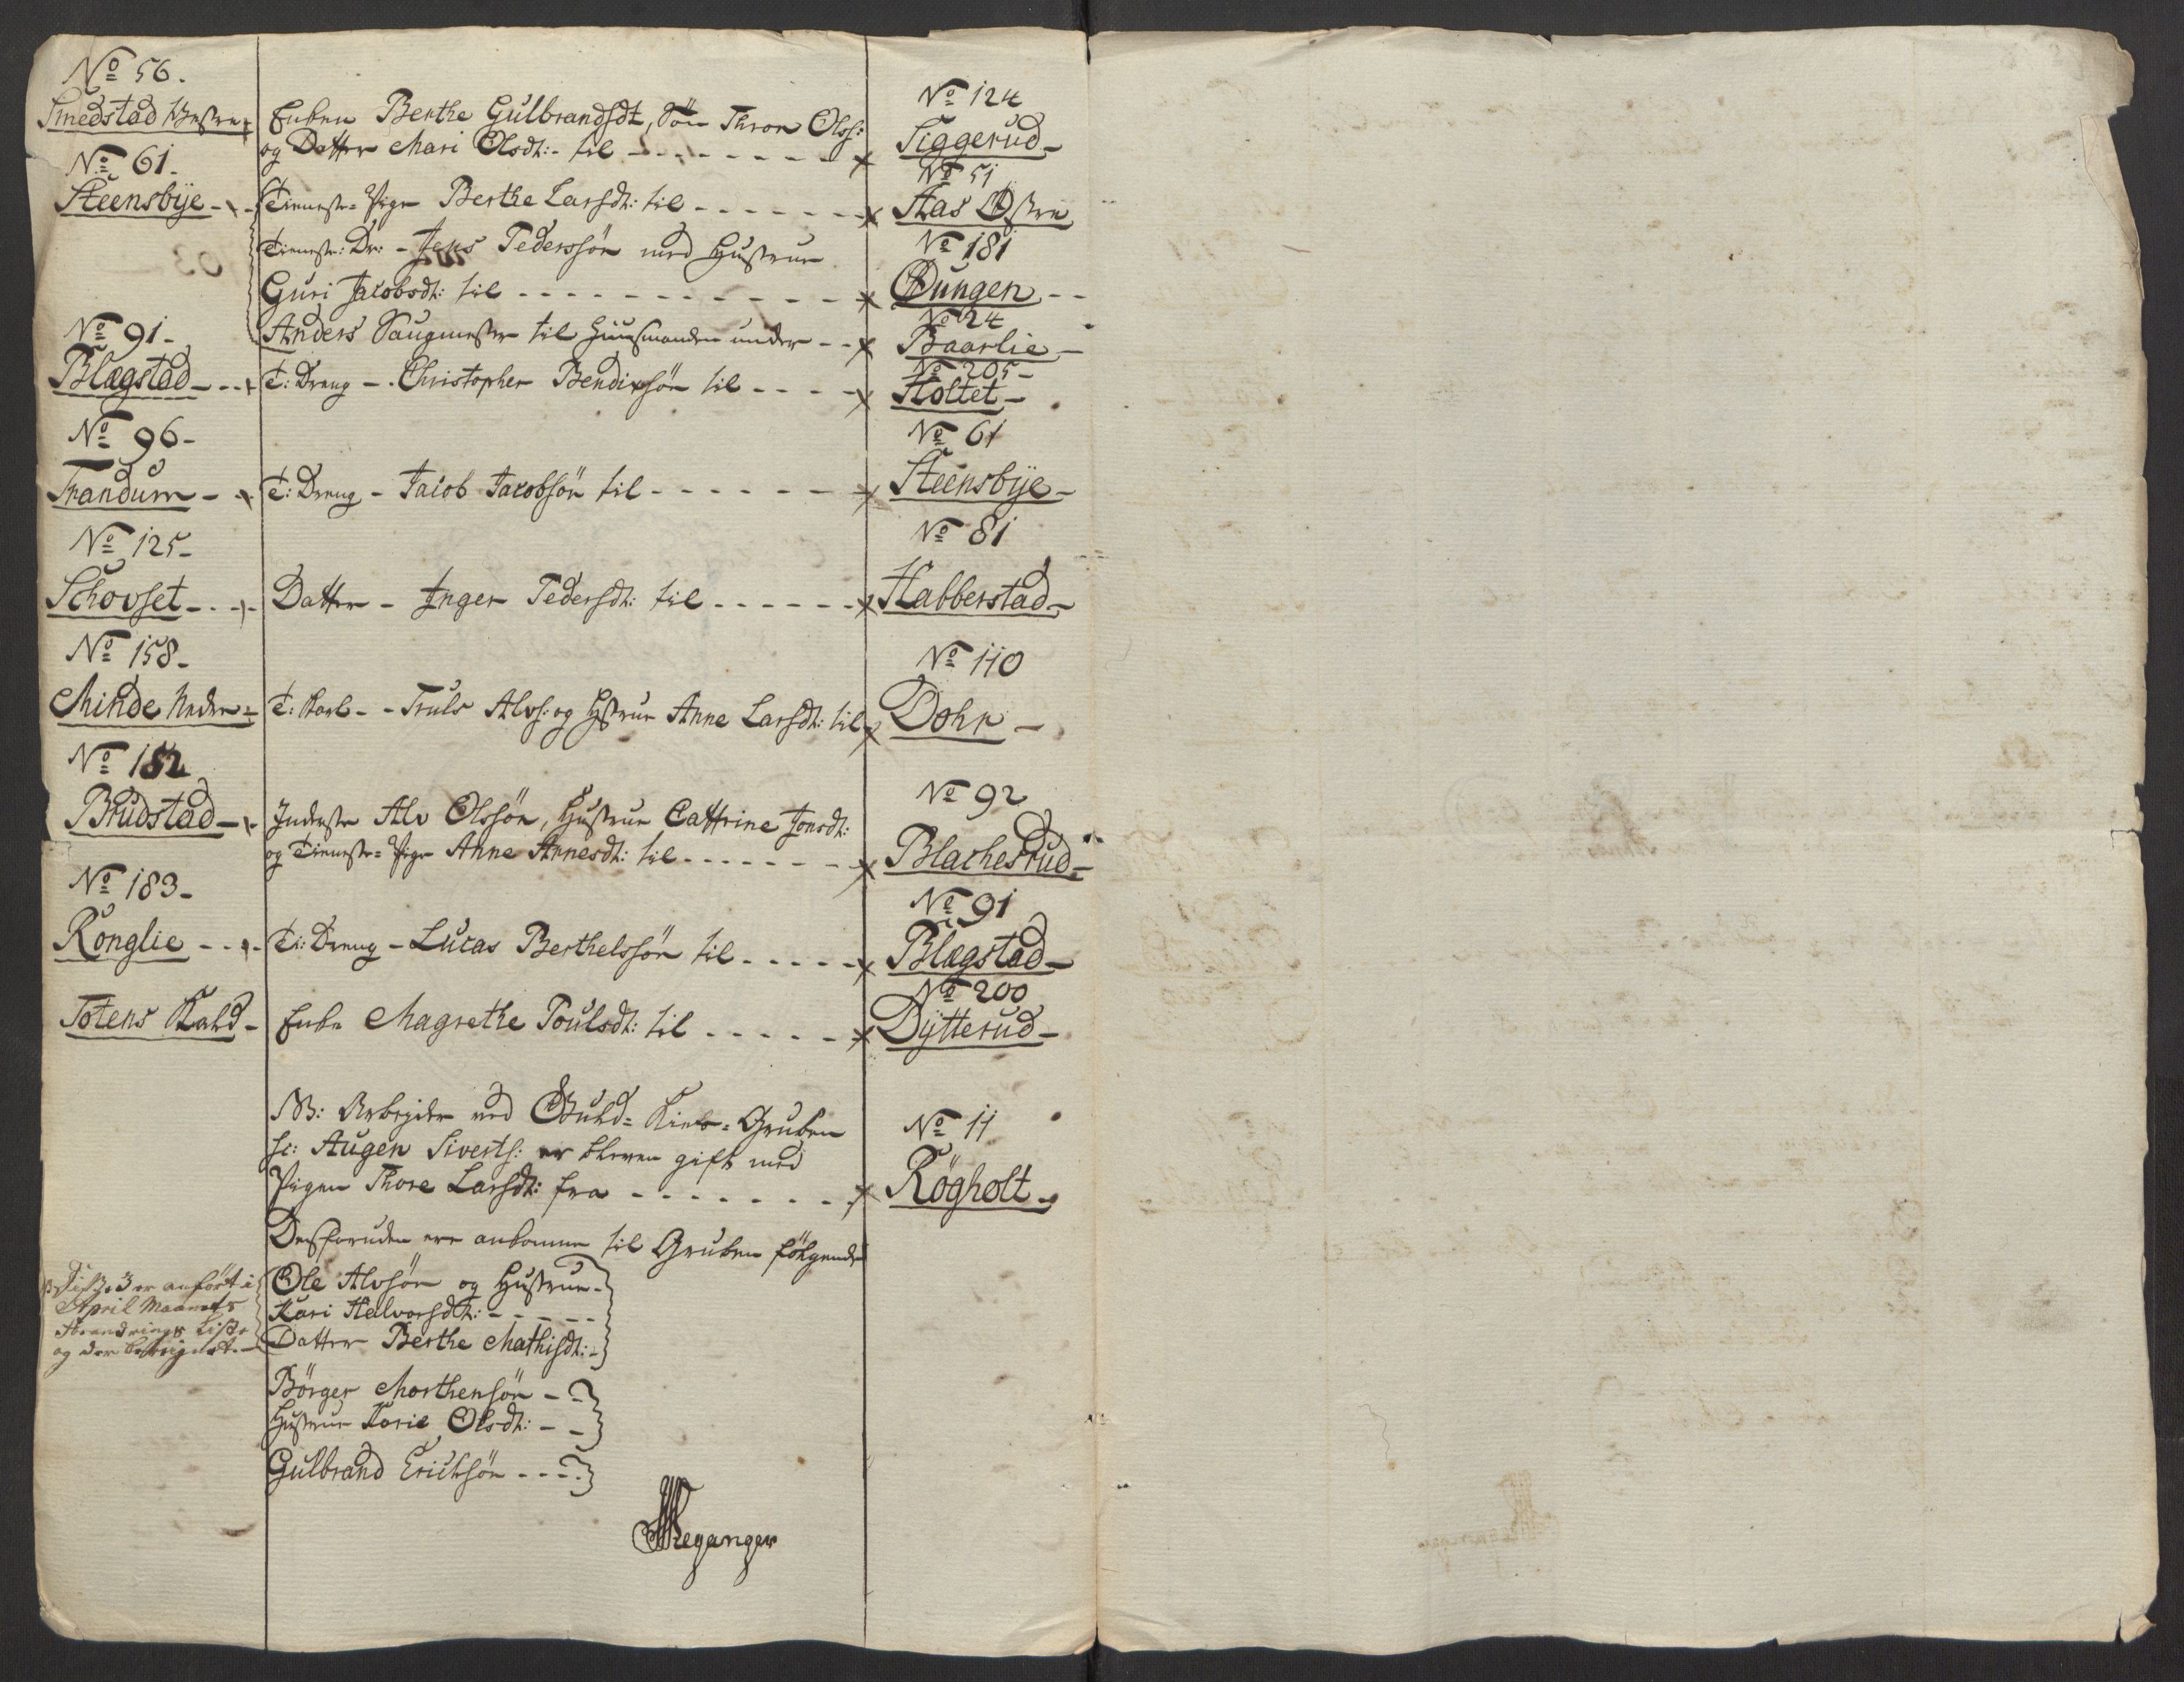 No 56.
Smedstad Westre
Enken Berthe Gulbrandsdt, Sön Thron Olss:
og Datter Mari Olsdt:- til - - - - - - - -
No 124
Siggerud -
No 61.
Steensbye - -
Tieneste- Pige Berthe Larsdt: til - - - - - - -
No 51
Aas Østre
Tieneste: Dr: - Jens Pederssön med Hustrue
Guri Jacobsdt: til - - - - - - - - - - -
No 181
Dungen - -
Anders Saugmester til Huusmanden under - -
No 24
Baarlie -
No 91 -
Blægstad - - -
T: Dreng - . Christopher Bendixsön til - - - -
No 205 -
Holtet -
No 96 -
Trandum - -
T: Dreng - Jacob Jacobsön til - - - - - - -
No 61
Steensbye -
No 125 -
Schovset - . -
Datter - Inger Pedersdt: til - - - - - -
No 81
Habberstad -
No 158 -
Minde Nedre -
T: Karl - - Truls Alvs: og Hustrue Anne Larsdt: til
No 110
Dohr -
No 182
Brudstad -
Inderste Alv Olssön, Hustrue Cattrine Jonsdt:
og Tieneste- Pige Anne Arnesdt: til - - - - - - - -
No 92
Blachesrud -
No 183 -
Ronglie - - -
Ti: Dreng - Lucas Berthelssön til - - - - -
No 91
Blægstad -
Totens Kald -
Enke Magrethe Poulsdt: til - - - - -
No 200
Dytterud -
NB: Arbeyder ved Guld- Kies- Gruben
sc: Augen Siverts: er bleven gift med
Pigen Thore Larsdt: fra - - - - - - - -
No 11
Rögholt -
Desforuden ere ankomne til Gruben følgende
Disse 3 er anført i
April Maaneds
Vandrings Liste
og der
Ole Alvsön og Hustrue -
Kari Halvorsdt: - - - - -
Datter Berthe Mathisdt: -
Börger Morthensön - -
Hustrue Karie Olsdt: - -
Gulbrand Erichsön - - - -